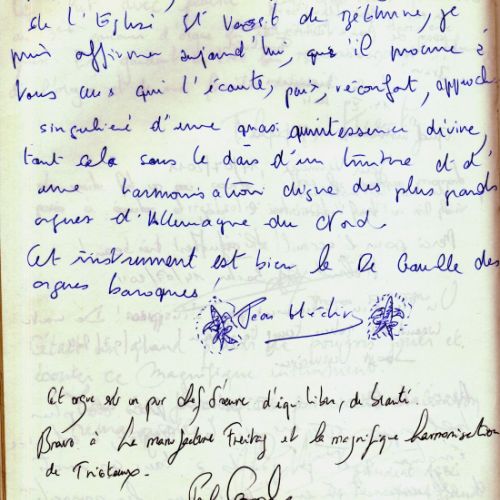 de l'Eglise St Vaast de Béthune, je
puis affirmer aujourd'hui, que il procure à
tous ceux qui l'écoute, paix, réconfort, approche
singulière d'une quasi quintessence divine,
tout cela sous le dais d'un timbre et d'
une harmonisation digne des plus grands
orgues d'Allemagne du Nord.
Cet instrument est bien le De Gaulle des
orgues baroques,
Jean
Cet orgue est un pur chef d'œuvre d'équilibre, de beauté.
Bravo à la manufacture Freitag et la magnifique harmonisation
de Tristaux.